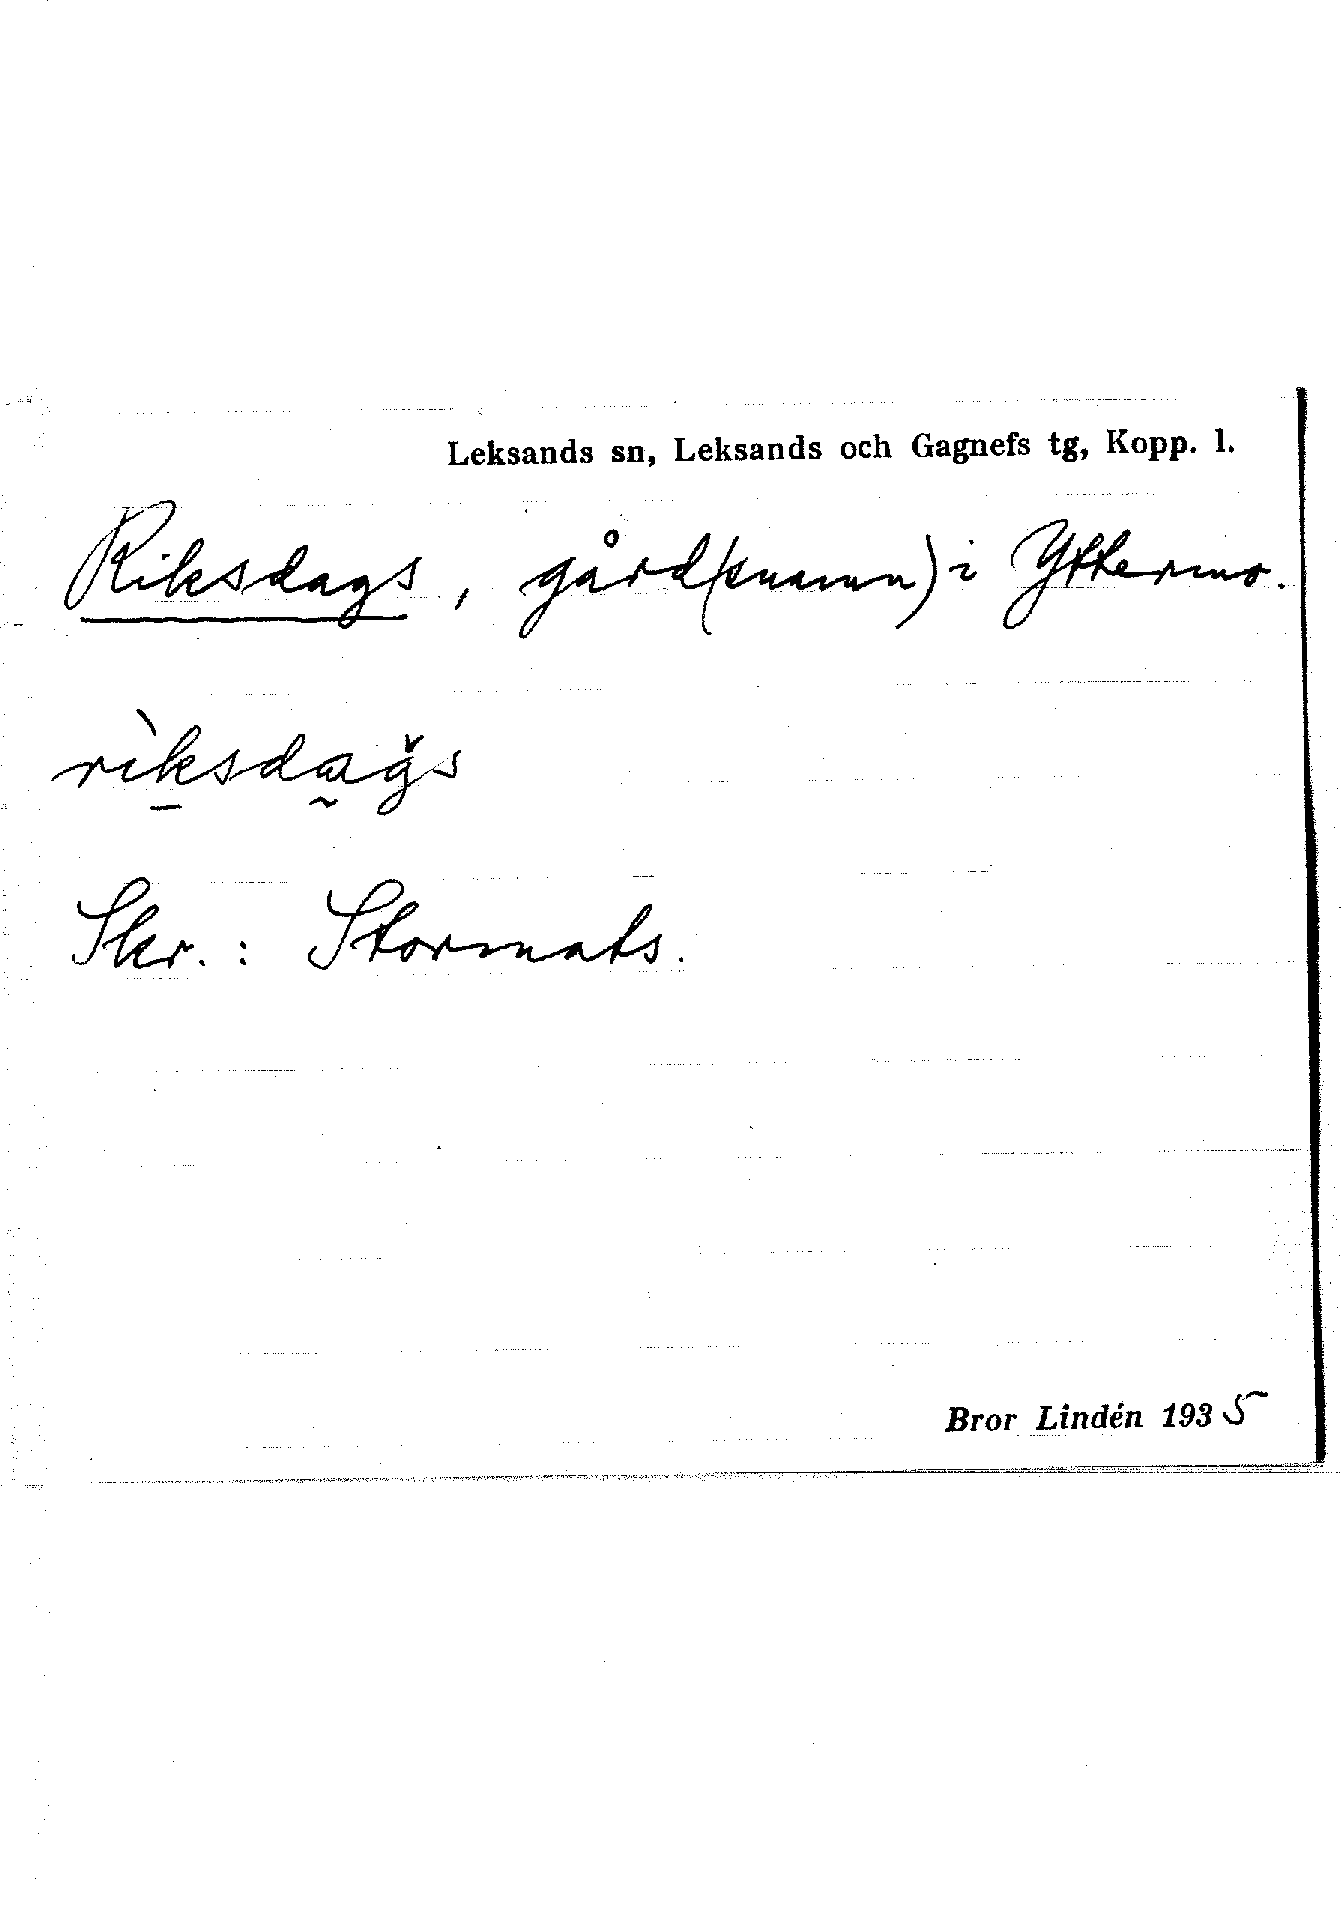 Leksands sn, Leksands och Gagnefs tg, Kopp. l.
Riksdags, gård(snamn) i Yttermo.
rìksdaǧs
Skr.: Stormats.
Bror Lindén 1935